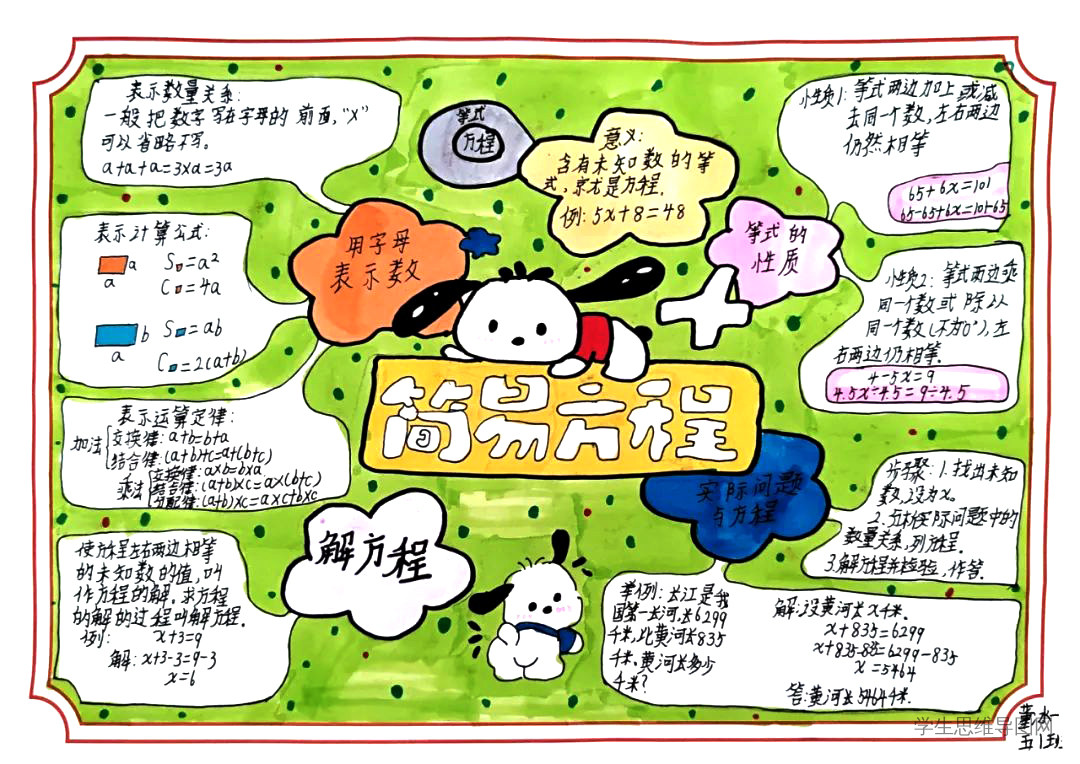 表示数量关系:
一般把数字写在字母的前面,"×"
可以省略不写。
a+a+a=3×a=3a
等式
方程
意义:
含有未知数的等
式,就是方程.
例: 5x+8=48
性质1: 等式两边加上或减
去同一个数,左右两边
仍然相等
65+6x=101
65-65+6x=101-65
表示计算公式:
a
a
S=a²
C=4a
b
a
S=ab
C=2(a+b)
用字母
表示数
等式的
性质
性质2: 等式两边乘
同一个数或除以
同一个数(不为0),左
右两边仍相等.
4.5x=9
4.5x÷4.5=9÷4.5
简易方程
表示运算定律:
加法
交换律: a+b=b+a
结合律: (a+b)+c=a+(b+c)
乘法
交换律: a×b=b×a
结合律: (a+b)×c=a×(b+c)
分配律: (a+b)×c=a×c+b×c
解方程
实际问题
与方程
步骤: 1.找出未知
数,设为x.
2.分析实际问题中的
数量关系,列方程.
3.解方程并检验,作答.
使方程左右两边相等
的未知数的值,叫
作方程的解.求方程
的解的过程叫解方程.
例: x+3=9
解: x+3-3=9-3
x=6
举例: 长江是我
国第一长河,长6299
千米,比黄河长835
千米,黄河长多少
千米?
解: 设黄河长x千米.
x+835=6299
x+835-835=6299-835
x=5464
答:黄河长5464千米.
学生思维导图网